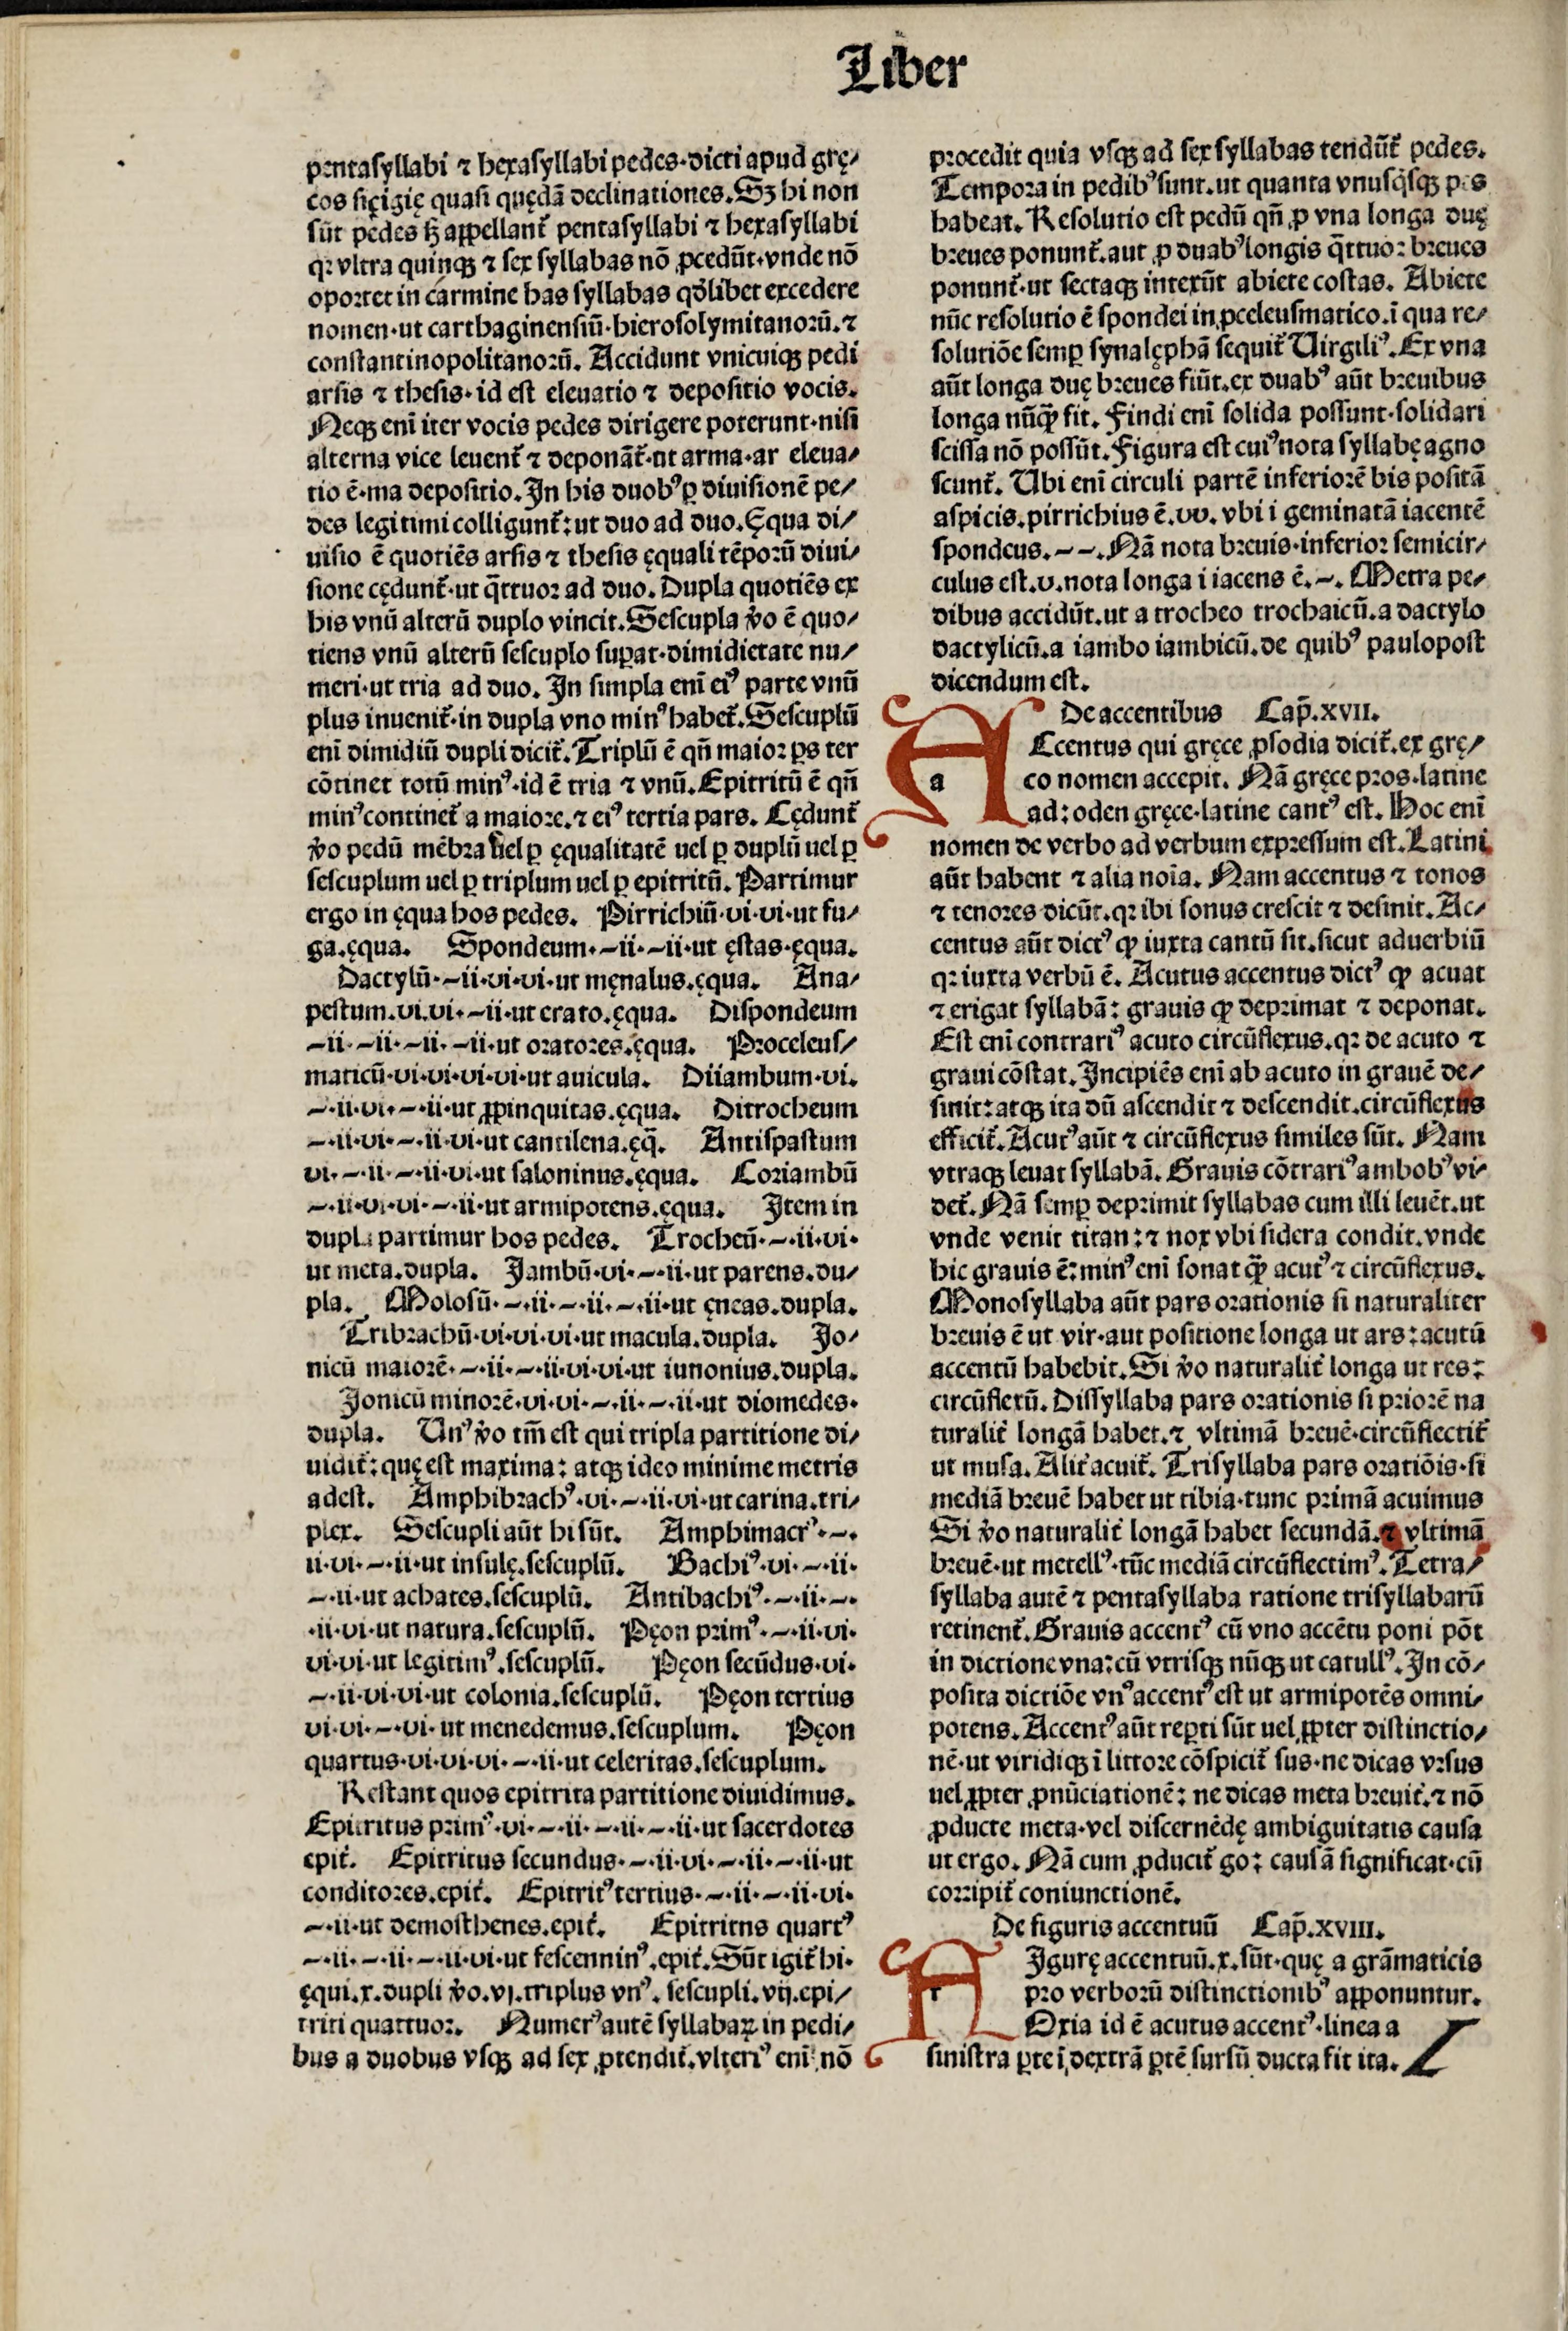 Liber
pentasyllabi ⁊ hexasyllabi pedes·dicti apud grę⸗
cos siçigię quasi quędā declinationes.Sꝫ hi non
sūt pedes ſꝫ appellanť pentasyllabi ⁊ hexasyllabi
qꝛ vltra quinqꝫ ⁊ sex syllabas nō ꝓcedūt·vnde nō
oportet in carmine has syllabas qđlibet excedere
nomen·ut carthaginensiū·hierosolymitanorū.⁊
constantinopolitanorū. Accidunt vnicuiqꝫ pedi
arsis ⁊ thesis·id est eleuatio ⁊ depositio vocis.
Neqꝫ enī iter vocis pedes dirigere poterunt·nisi
alterna vice leuenť ⁊ deponāť·ut arma·ar eleua⸗
tio ē·ma depositio.In his duobꝰ ꝑ diuisionē pe⸗
des legitimi colligunť:ut duo ad duo.Ęqua di⸗
uisio ē quotiēs arsis ⁊ thesis ęquali tēporū diui⸗
sione cędunť·ut q̄ttuor ad duo. Dupla quotiēs ex
his vnū alterū duplo vincit.Sescupla v̊o ē quo⸗
tiens vnū alterū sescuplo suꝑat·dimidietate nu⸗
meri·ut tria ad duo. In simpla enī eiꝰ parte vnū
plus inueniť·in dupla vno minꝰ habeť.Sescuplū
enī dimidiū dupli diciť.Triplū ē qñ maior ꝑs ter
cōtinet totū minꝰ·id ē tria ⁊ vnū.Epitritū ē qñ
minꝰ contineť a maiore.⁊ eiꝰ tertia pars. Cędunť
v̊o pedū mēbra uel ꝑ ęqualitatē uel ꝑ duplū uel ꝑ
sescuplum uel ꝑ triplum uel ꝑ epitritū. Partimur
ergo in ęqua hos pedes. Pirrichiū·vi·vi·ut fu⸗
ga.ęqua. Spondeum·–ii·–ii·ut ęstas·ęqua.
Dactylū·–ii·vi·vi·ut męnalus.ęqua. Ana⸗
pestum.vi.vi·–ii·ut erato.ęqua. Dispondeum
–ii·–ii·–ii·–ii·ut oratores.ęqua. Proceleus⸗
maticū·vi·vi·vi·vi·ut auicula. Diiambum·vi.
–·ii·vi·–·ii·ut ꝓpinquitas.ęqua. Ditrocheum
–·ii·vi·–·ii·vi·ut cantilena.ęq̄. Antispastum
vi·–·ii·–·ii·vi·ut saloninus.ęqua. Coriambū
–·ii·vi·vi·–·ii·ut armipotens.ęqua. Item in
dupla partimur hos pedes. Trocheū·–·ii·vi·
ut meta.dupla. Jambū·vi·–·ii·ut parens.du⸗
pla. Molosū·–·ii·–·ii·–·ii·ut ęneas.dupla.
Tribrachū·vi·vi·vi·ut macula.dupla. Jo⸗
nicū maiorē·–·ii·–·ii·vi·vi·ut iunonius.dupla.
Jonicū minorē·vi·vi·–·ii·–·ii·ut diomedes·
dupla. Unꝰ v̊o tm̄ est qui tripla partitione di⸗
uidiť:quę est maxima: atqꝫ ideo minime metris
adest. Amphibrachꝰ·vi·–·ii·vi·ut carina.tri⸗
plex. Sescupli aūt hi sūt. Amphimacrꝰ·–·
ii·vi·–·ii·ut insulę.sescuplū. Bachiꝰ·vi·–·ii·
–·ii·ut achates.sescuplū. Antibachiꝰ·–·ii·–·
·ii·vi·ut natura.sescuplū. Pęon primꝰ·–·ii·vi·
vi·vi·ut legitimꝰ.sescuplū. Pęon secūdus·vi·
–·ii·vi·vi·ut colonia.sescuplū. Pęon tertius
vi·vi·–·vi·ut menedemus.sescuplum. Pęon
quartus·vi·vi·vi·–·ii·ut celeritas.sescuplum.
Restant quos epitrita partitione diuidimus.
Epitritus primꝰ·vi·–·ii·–·ii·–·ii·ut sacerdotes
epiť. Epitritus secundus·–·ii·vi·–·ii·–·ii·ut
conditores.epiť. Epitritꝰ tertius·–·ii·–·ii·vi·
–·ii·ut demosthenes.epiť. Epitritns quartꝰ
–·ii·–·ii·–·ii·vi·ut fescenninꝰ.epiť.Sūt igiť hi·
ęqui.x.dupli v̊o.vj.triplus vnꝰ. sescupli.vij.epi⸗
triti quattuor. Numerꝰ autē syllabaꝝ in pedi⸗
bus a duobus vsqꝫ ad sex ꝓtendiť.vlteriꝰ enī nō
procedit quia vsqꝫ ad sex syllabas tendūť pedes.
Tempora in pedibꝰ sunt.ut quanta vnusq̇sqꝫ pes
habeat. Resolutio est pedū qñ ꝓ vna longa duę
breues ponunť.aut ꝓ duabꝰ longis q̄ttuor breues
ponunť·ut sectaqꝫ intexūt abiete costas. Abiete
nūc resolutio ē spondei in ꝓceleusmatico.ī qua re⸗
solutiōe semꝑ synalęphā sequiť Uirgiliꝰ.Ex vna
aūt longa duę breues fiūt.ex duabꝰ aūt breuibus
longa nūꝙ̄ fit. Findi enī solida possunt·solidari
scissa nō possūt.Figura est cuiꝰ nota syllabę agno
scunť. Ubi enī circuli partē inferiorē bis positā
aspicis.pirrichius ē.υυ. vbi i geminatā iacentē
spondeus.–‑–.Nā nota breuis·inferior semicir⸗
culus est.υ.nota longa i iacens ē.–. Metra pe⸗
dibus accidūt.ut a trocheo trochaicū.a dactylo
dactylicū.a iambo iambicū.de quibꝰ paulopost
dicendum est.
De accentibus Cap̄.XVII.
Accentus qui gręce ꝓsodia diciť.ex grę⸗
co nomen accepit. Nā gręce pros·latine
ad:oden gręce·latine cantꝰ est. Hoc enī
nomen de verbo ad verbum expressum est.Latini
aūt habent ⁊ alia noīa. Nam accentus ⁊ tonos
⁊ tenores dicūt.qꝛ ibi sonus crescit ⁊ desinit.Ac⸗
centus aūt dictꝰ ꝙ iuxta cantū sit.sicut aduerbiū
qꝛ iuxta verbū ē. Acutus accentus dictꝰ ꝙ acuat
⁊ erigat syllabā: grauis ꝙ deprimat ⁊ deponat.
Est enī contrariꝰ acuto circūflexus.qꝛ de acuto ⁊
graui cōstat.Incipiēs enī ab acuto in grauē de⸗
sinit:atqꝫ ita dū ascendit ⁊ descendit.circūflexus
efficiť.Acutꝰ aūt ⁊ circūflexus similes sūt. Nam
vtraqꝫ leuat syllabā. Grauis cōtrariꝰ ambobꝰ vi⸗
deť.Nā semꝑ deprimit syllabas cum illi leuēt.ut
vnde venit titan:⁊ nox vbi sidera condit.vnde
hic grauis ē:minꝰ enī sonat ꝙ̄ acutꝰ ⁊ circūflexus.
Monosyllaba aūt pars orationis si naturaliter
breuis ē ut vir·aut positione longa ut ars:acutū
accentū habebit.Si v̊o naturaliť longa ut res:
circūflexū.Dissyllaba pars orationis si priorē na
turaliť longā habet.⁊ vltimā breuē·circūflectiť
ut musa.Aliť acuiť. Trisyllaba pars oratiōis·si
mediā breuē habet ut tibia·tunc primā acuimus
Si v̊o naturaliť longā habet secundā.⁊ vltimā
breuē·ut metellꝰ·tūc mediā circūflectimꝰ.Tetra⸗
syllaba autē ⁊ pentasyllaba ratione trisyllabarū
retinenť.Grauis accentꝰ cū vno accētu poni pōt
in dictione vna:cū vtrisqꝫ nūqꝫ ut catullꝰ.In cō⸗
posita dictiōe vnꝰ accentꝰ est ut armipotēs omni⸗
potens.Accentꝰ aūt reꝑti sūt uel ꝓpter distinctio⸗
nē·ut viridiqꝫ ī littore cōspiciť sus·ne dicas vrsus
uel ꝓpter ꝓnūciationē: ne dicas meta breuiť.⁊ nō
ꝓducte meta·vel discernēdę ambiguitatis causa
ut ergo. Nā cum ꝓduciť go: causā significat·cū
corripiť coniunctionē.
De figuris accentuū Cap̄.XVIII.
Figurę accentuū.x.sūt·quę a grāmaticis
pro verborū distinctionibꝰ apponuntur.
Oxia id ē acutus accentꝰ·linea a
sinistra ꝑte ī dextrā ꝑtē sursū ducta fit ita.